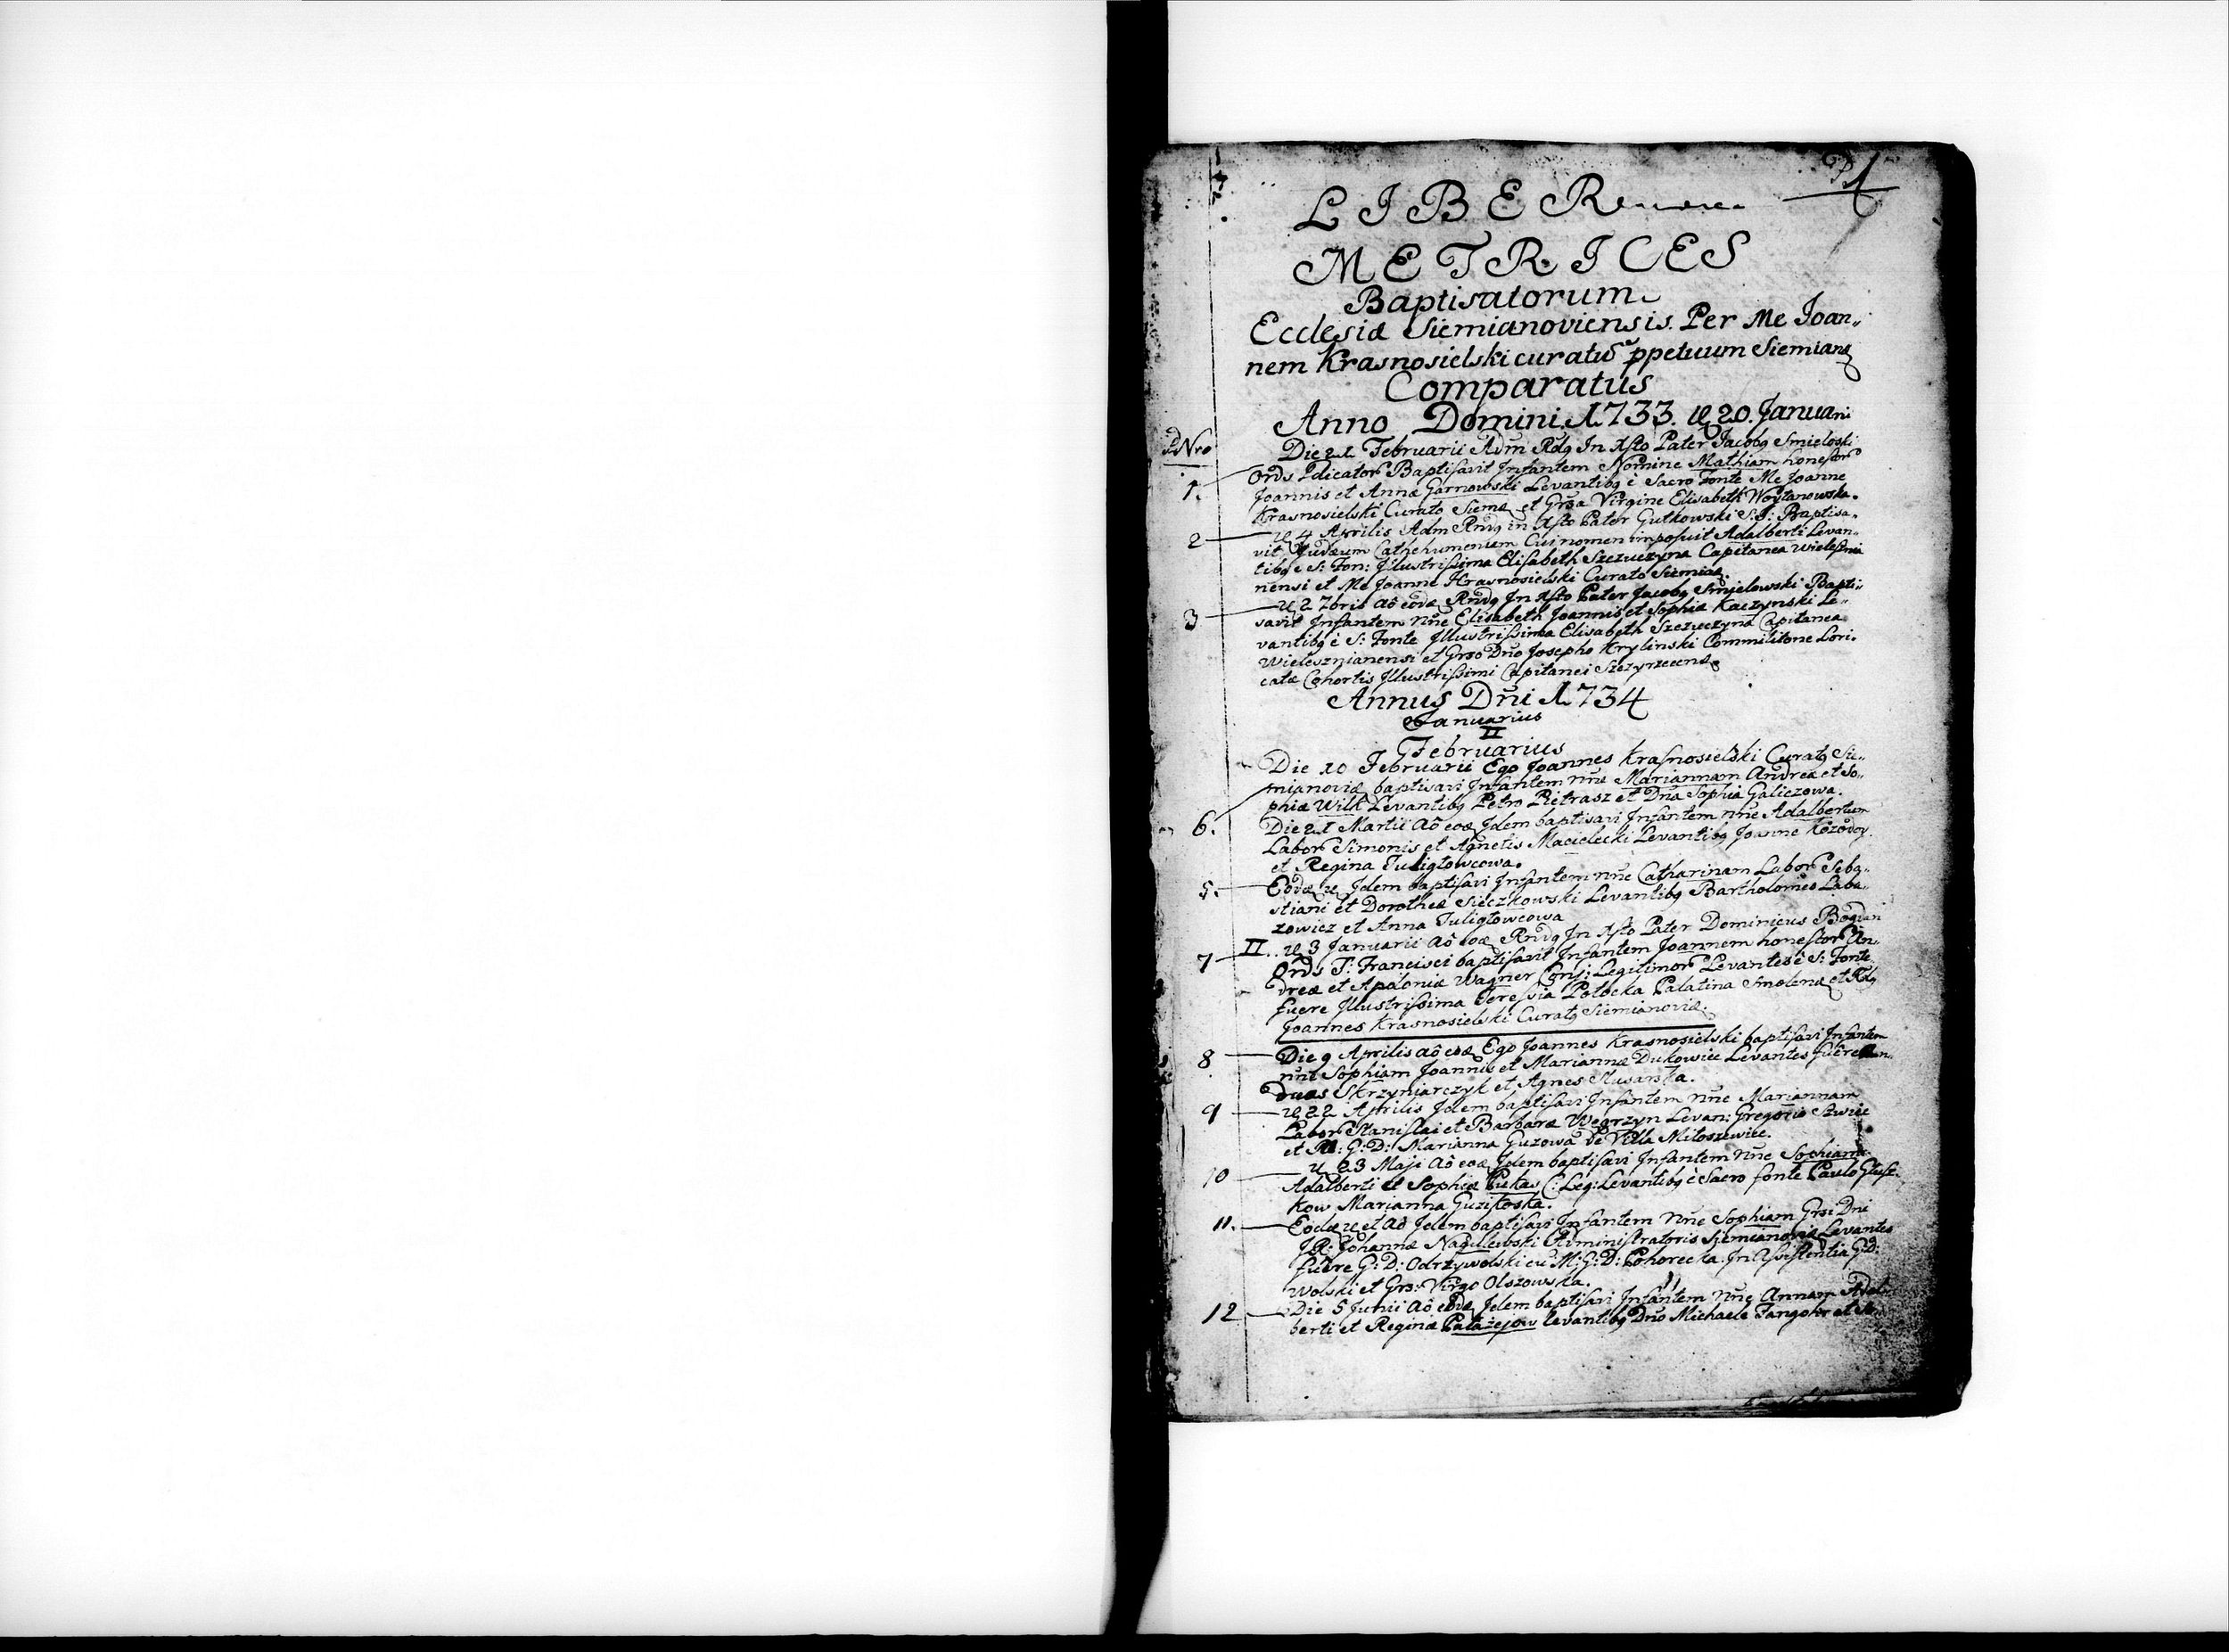 1
LIBER
METRICES
Baptisatorum
Ecclesiæ Siemianoviensis. Per Me Joan„
nem Krasnosielski curatū ppetuum Siemianæ
Comparatus
Anno Domini 1733. 20. Januari
Nro
Die 21 Februarii Adm Rdq In Xsto Pater Jacobq Smieloski
1. Ords Pdicator Baptisavit Infantem Nomine Mathiam honestor
Joannis et Annæ Garnowski Levantibq è Sacro Fonte Me Joanne
Krasnosielski Curato Siemæ et Grsa Virgine Elisabeth Woytanowska.
2 4 Aprilis Adm Rndq in Xsto Pater Gutkowski S: J: Baptisa„
vit Judæum Cathehumenum Cui nomen imposuit Adalberti Levan„
tibq è S: Fon: Illustrissima Elisabeth Szezuczyna Capitanea
nensi et Me Joanne Krasnosielski Curato Siemiaæ.
3 2 7bris aô eodæ Rndq In Xsto Pater Jacobq Smielowski Bapti„
savit Infantem nne Elisabeth Joannis et Sophiæ Kaczynski Le„
vantibq è S: Fonte Illustrissima Elisabeth Szezuczyna Capitanea
Wieleznianensi et Grso Dno Josepho Krylinski Commilitone Lori„
catæ Cohortis Illustrissimi Capitanei
Annus Dñi 1734
Januarius
II
Februarius
Die 10 Februarii Ego Joannes Krasnosielski Curatq Sie„
mianoviæ baptisavi Infantem nne Mariannam Andreæ et So„
phiæ Wilk Levantibq Petro Pietrasz et Dna Sophia Galiczowa.
6. Die 21 Martii Aô eoæ Idem baptisavi Infantem nne Adalbertum
Labor Simonis et Agnetis Macielecki Levantibq Joanne
et Regina Tuliglowcowa.
5. Eodæ Idem baptisavi Infantem nne Catharinam Labor Seba„
stiani et Dorotheæ Sieczkowski Levantibq Bartholomeo Laba„
zowicz et Anna Tuliglowcowa
7 II 3 Januarii aô eoæ Rndq In Xsto Pater Dominicus
Ords S: Francisci baptisavit Infantem Joannem honestor An„
dreæ et Apoloniæ Wagner Conj: Legitimor Levantes è S: Fonte
fuere Illustrissima Teressia Potocka Palatina Smolenæ et Rdq
Joannes Krasnosielski Curatq Siemianoviæ.
8 Die 9 Aprilis aô eoæ Ego Joannes Krasnosielski baptisavi Infantem
nne Sophiam Joannis et Mariannæ Dukowicz Levantes fuere
Skrzyniarczyk et Agnes Slusarska.
9 22 Aprilis Idem baptisavi Infantem nne Mariannam
Labor Stanislai et Barbaræ Węgrzyn Levan: Gregorio
et M: G: D: Marianna Guzowa de Villa Miloszewice.
10 23 Maji aô eoæ Idem baptisavi Infantem nne Sophiam
Adalberti et Sophiæ Pukas C: Leg: Levantibq è Sacro fonte Paulo
kow Marianna Guzikoska.
11. Eodæ et aô Idem baptisavi Infantem nne Sophiam Grsi Dni
Johannæ Nagulewski Administratoris Siemianoviæ Levantes
fuere G: D: Odrzywolski cū M: G: D: Pohorecka. In Assistentia G: D:
Wolski et Grs: Virgo Olszowska.
12 Die 5 Junii aô eodæ Idem baptisavi Infantem nne Annam
berti et Reginæ levantibq Dno Michaele